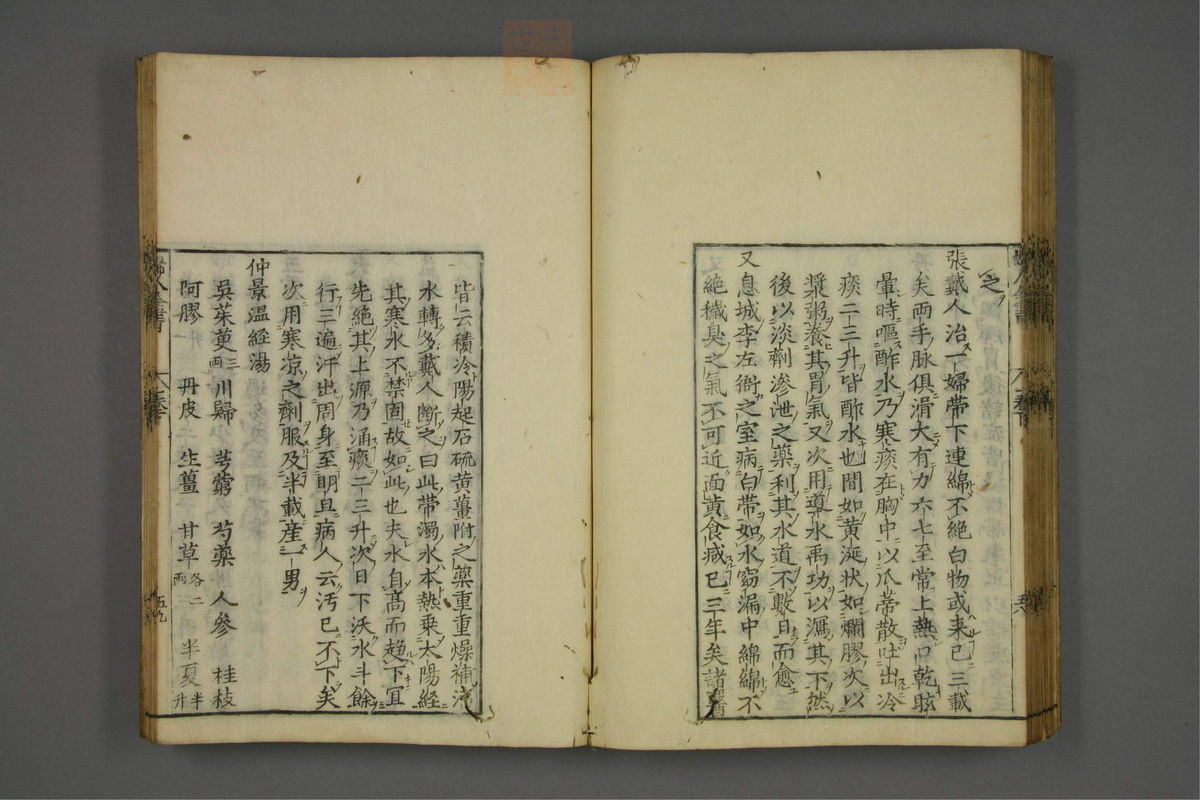 之
張戴人治一婦帯下連綿不絶白物或来已三載
矣両手脉倶滑大有力六七至常上熱口乾眩
暈時嘔酢水乃寒痰在胸中以瓜蒂散吐出冷
痰二三升皆酢水也間如黄涎状如爛膠次以
漿粥養其胃氣又次用導水禹功以瀉其下然
後以淡劑滲泄之藥利其水道不數日而愈
又息城李左衙之室病白帯如水窈漏中綿綿不
絶穢臭之氣不可近面黄食减已三年矣諸醫
皆云積冷陽起石硫黄薑附之藥重重燥補汚
水轉多戴人断之曰此帯濁水本熱乗太陽経
其寒水不禁固故如此也夫水自髙而趋下冝
先絶其上源乃涌痰二三升次日下沃水斗餘
行三遍汗出周身至明旦病人云汚已不下矣
次用寒凉之劑服及半載産一男
仲景温経湯
呉茱萸三両 川歸 芎藭 芍藥 人參 桂枝
阿膠 丹皮 生薑 甘草各二両 半夏半升